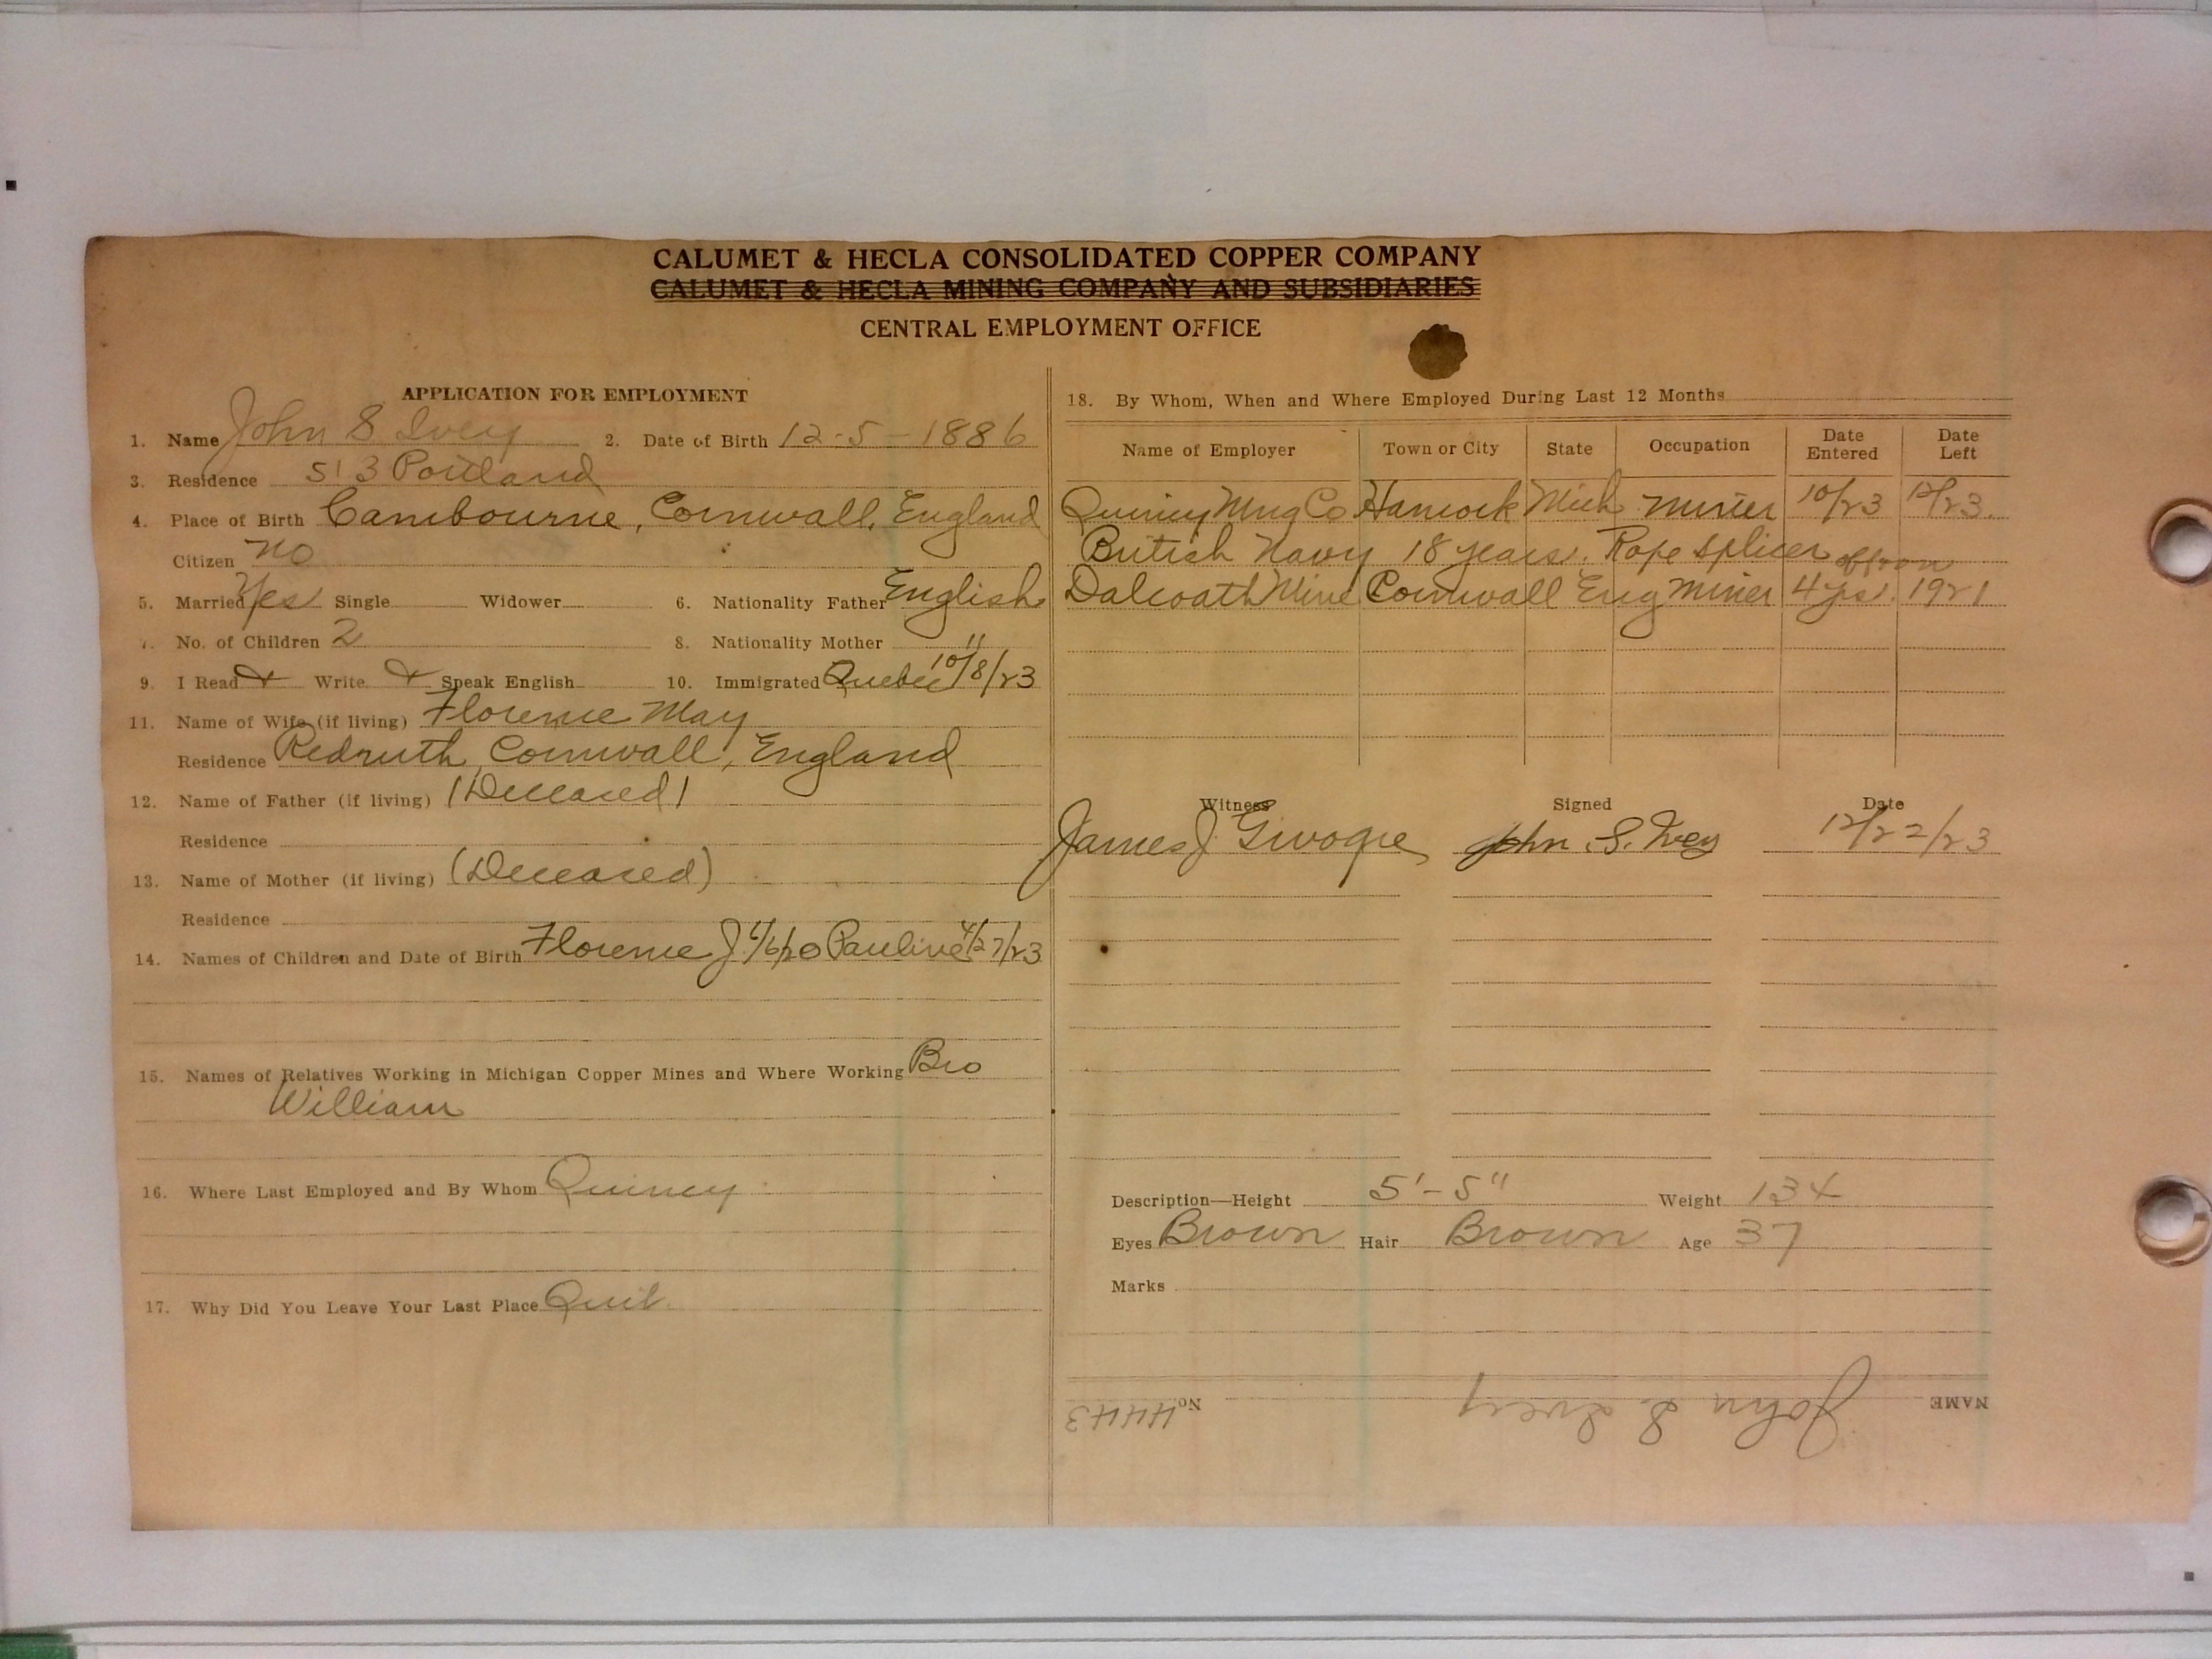 CALUMET & HECLA CONSOLIDATED COPPER COMPANY
CALUMET & HECLA MINING COMPANY AND SUBSIDIARIES
CENTRAL EMPLOYMENT OFFICE
APPLICATION FOR EMPLOYMENT
1. Name John S Ivey 2. Date of Birth 12-5-1886
3. Residence 513 Portland
4. Place of Birth Cambourne, Cornwall, England
Citizen no
5. Married Yes Single Widower 6. Nationality Father English
7. No. of Children 2 8. Nationality Mother "
9. I Read Write Speak English 10. Immigrated Quebec 10/8/23
11. Name of Wife (if living) Florence May
Residence Redruth, Cornwall, England
12. Name of Father (if living) (Deceased)
Residence
13. Name of Mother (if living) (Deceased)
Residence
14. Names of Children and Date of Birth Florence J. /6/20 Pauline 4/27/23
15. Names of Relatives Working in Michigan Copper Mines and Where Working Bro
William
16. Where Last Employed and By Whom Quincy
17. Why Did You Leave Your Last Place Quit
18. By Whom, When and Where Employed During Last 12 Months
Name of Employer Town or City State Occupation Date Entered Date Left
Quincy Mng Co Hancock Mich Miner 10/23 12/23
British Navy 18 years. Rope splicer off & on
Dalcoath Mine Cornwall Eng Miner 4 yrs. 1921
Witness Signed Date
James J. John S. Ivey 12/22/23
Description—Height 5'-5" Weight 134
Eyes Brown Hair Brown Age 37
Marks
NAME John S. Ivey No. 4443